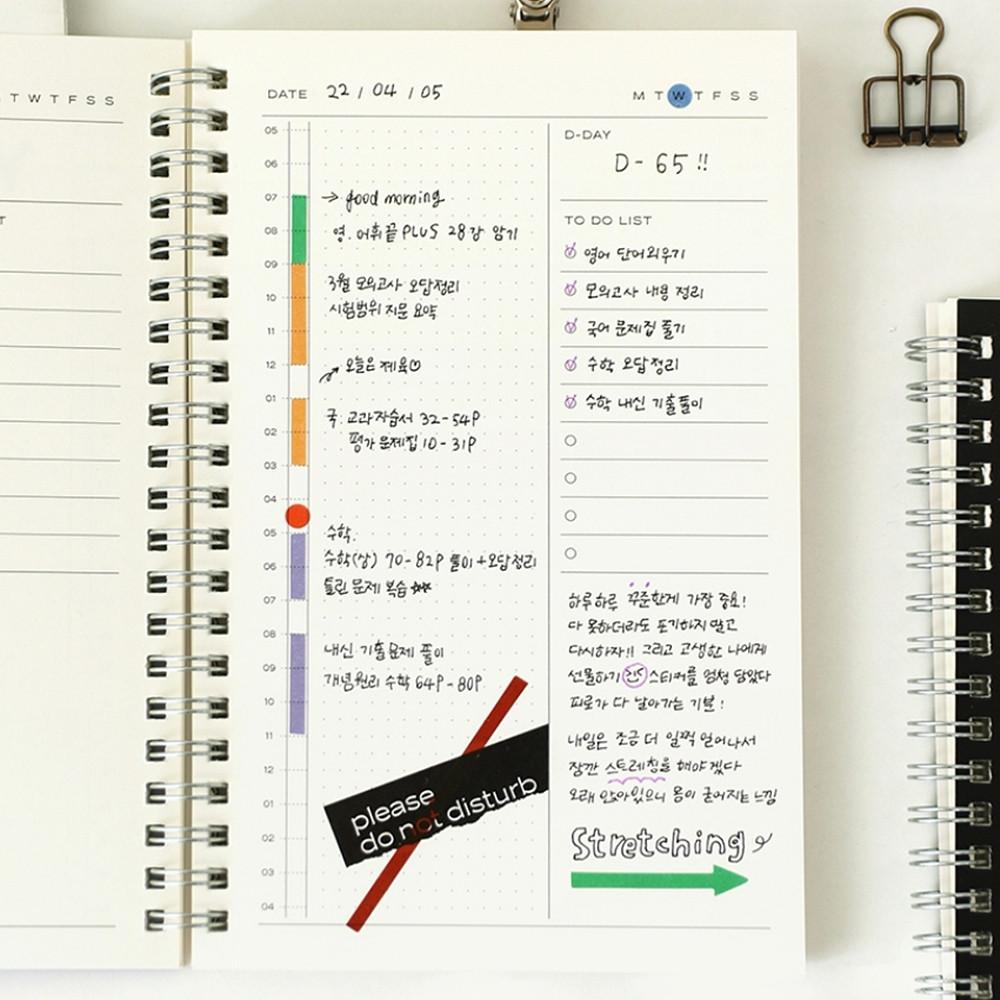 T W T F S S
T
DATE 22 / 04 / 05
M T W T F S S
05
06
07
08
09
10
11
12
01
02
03
04
05
06
07
08
09
10
11
12
01
02
03
04
→ good morning
영. 어휘끝 PLUS 28강 암기
3월 모의고사 오답정리
시험범위 지문 요약
오늘은 제육♡
국. 교과자습서 32-54P
평가 문제집 10-31P
수학.
수학(상) 70-82P 풀이+오답정리
틀린 문제 복습
내신 기출문제 풀이
개념원리 수학 64P-80P
please
do not disturb
D-DAY
D-65!!
TO DO LIST
영어 단어외우기
모의고사 내용 정리
국어 문제집 풀기
수학 오답정리
수학 내신 기출풀이
하루하루 꾸준한게 가장 중요!
다 못하더라도 포기하지 말고
다시하자!! 그리고 고생한 나에게
선물하기 스티커를 엄청 담았다
피로가 다 날아가는 기분!
내일은 조금 더 일찍 일어나서
잠깐 스트레칭을 해야겠다
오래 앉아있으니 몸이 굳어지는 느낌
Stretching